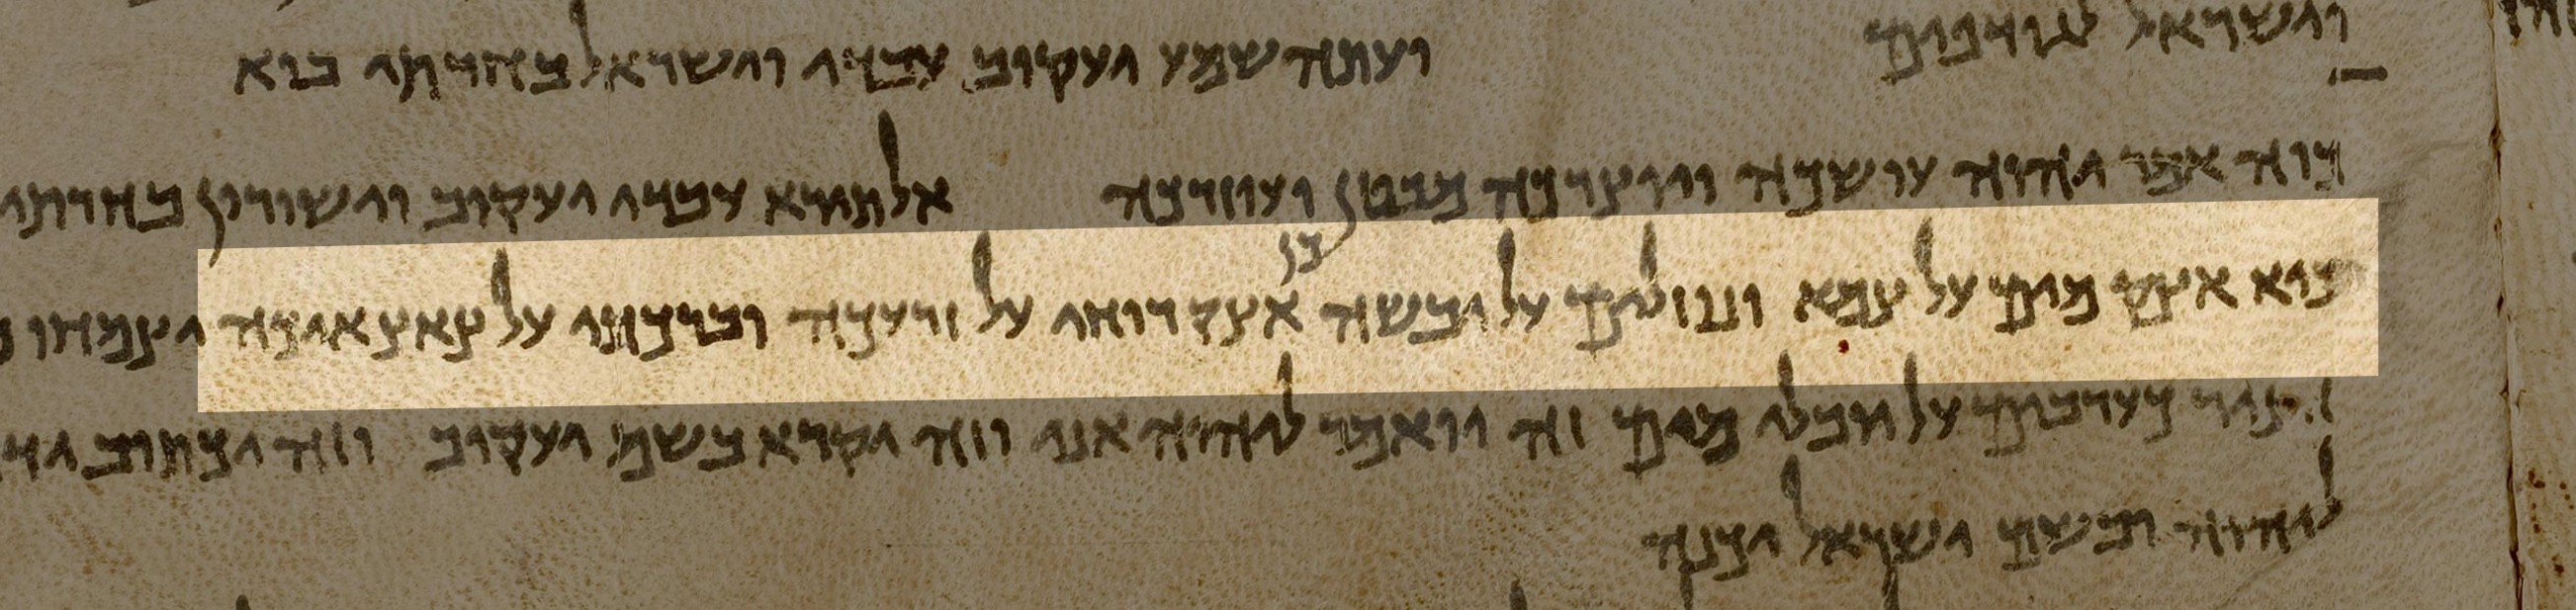 וישראל לגודפים ועתה שמע יעקוב עבדי וישראל בחרתי בוא
כוה אמר יהוה עושכה ויוצרכה מבטן ועוזרכה אל תירא עבדי יעקוב וישורון בחרתי
כיא אצק מים על צמא ונוזלים על יבשה כן אצק רוחי על זרעכה וברכותי על צאצאיכה יצמחו
חציר כערבים על יבלי מים זה יואמר ליהוה אני וזה יקרא בשם יעקוב וזה יכתוב
ליהוה ובשם ישראל יכנה